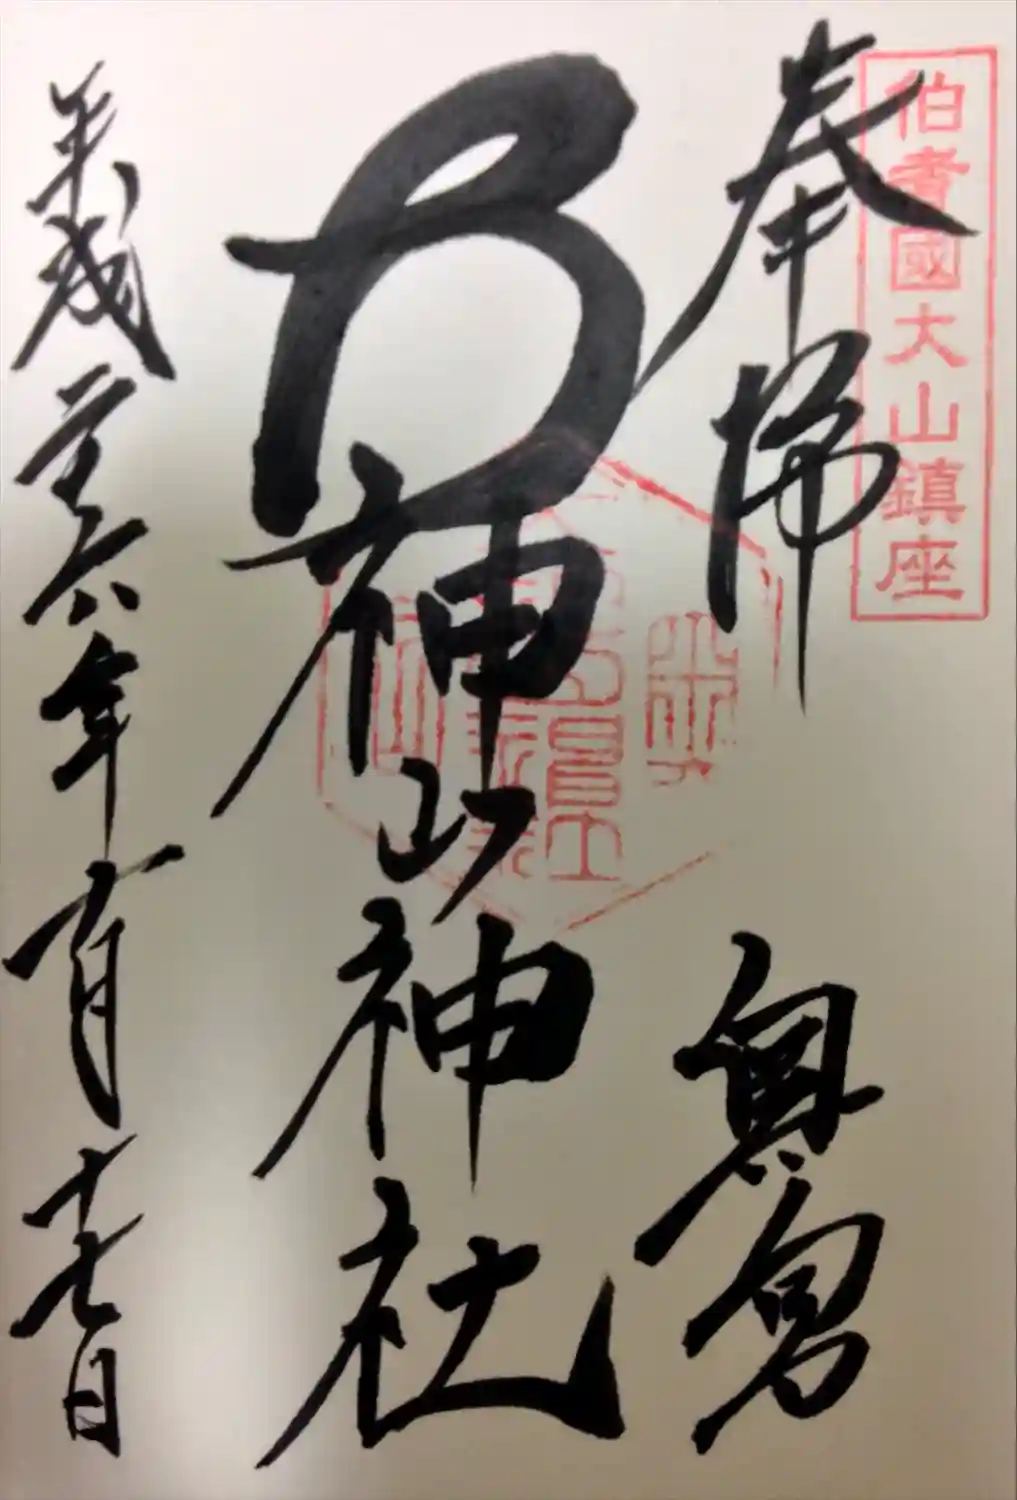 伯耆國大山鎮座
奉拝 奥宮
大神山神社
平成二十六年 月十七日